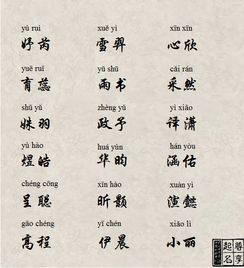 yú ruì xuě yì xīn xīn
妤芮 雪羿 心欣
yuē ruǐ yǔ shū cǎi rán
育蕊 雨书 采然
shū yǔ zhèng yǔ yì xiāo
姝羽 政予 译潇
yù hào huá yún hán yòu
煜皓 华昀 涵佑
chéng cōng xīn hào xuàn yì
呈聪 昕颢 懿
gāo chéng yī chén xiǎo lì
高程 伊晨 小丽
起名